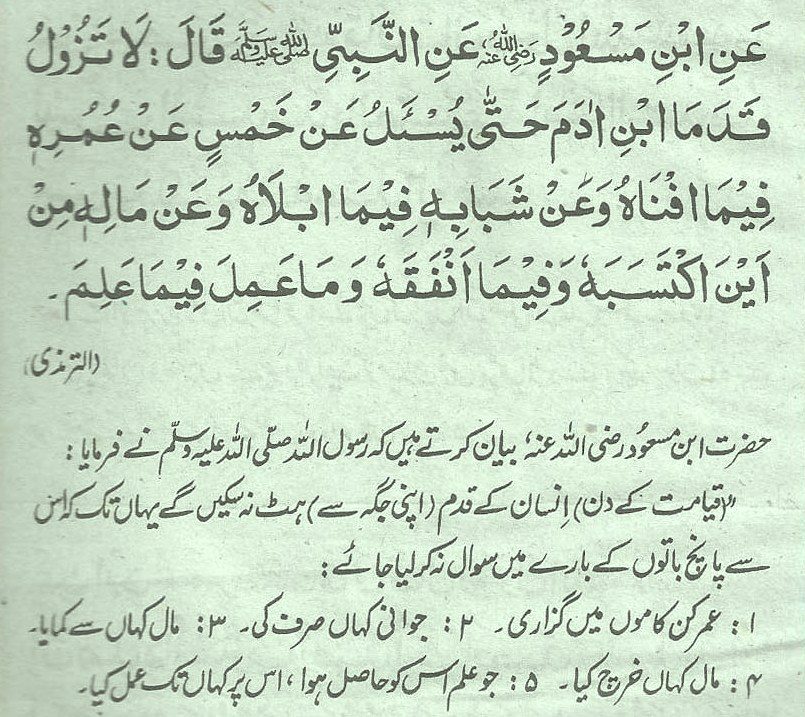 عَنِ ابْنِ مَسْعُوْدٍ رضی اللہ عنہ عَنِ النَّبِیِّ صلی اللہ علیہ وسلم قَالَ: لَا تَزُوْلُ
قَدَمَا ابْنِ اٰدَمَ حَتّٰی یُسْئَلُ عَنْ خَمْسٍ عَنْ عُمُرِہٖ
فِیْمَا اَفْنَاہُ وَعَنْ شَبَابِہٖ فِیْمَا اَبْلَاہُ وَعَنْ مَالِہٖ مِنْ
اَیْنَ اکْتَسَبَہٗ وَفِیْمَا اَنْفَقَہٗ وَمَا عَمِلَ فِیْمَا عَلِمَ۔
(الترمذی)
حضرت ابن مسعُود رضی اللہ عنہٗ بیان کرتے ہیں کہ رسول اللہ صلّی اللہ علیہ وسلّم نے فرمایا:
"(قیامت کے دن) اِنسان کے قدم (اپنی جگہ سے) ہٹ نہ سکیں گے یہاں تک کہ اس
سے پانچ باتوں کے بارے میں سوال نہ کر لیا جائے:
۱: عمر کن کاموں میں گزاری۔ ۲: جوانی کہاں صرف کی۔ ۳: مال کہاں سے کمایا۔
۴: مال کہاں خرچ کیا۔ ۵: جو علم اس کو حاصل ہوا، اس پر کہاں تک عمل کیا۔